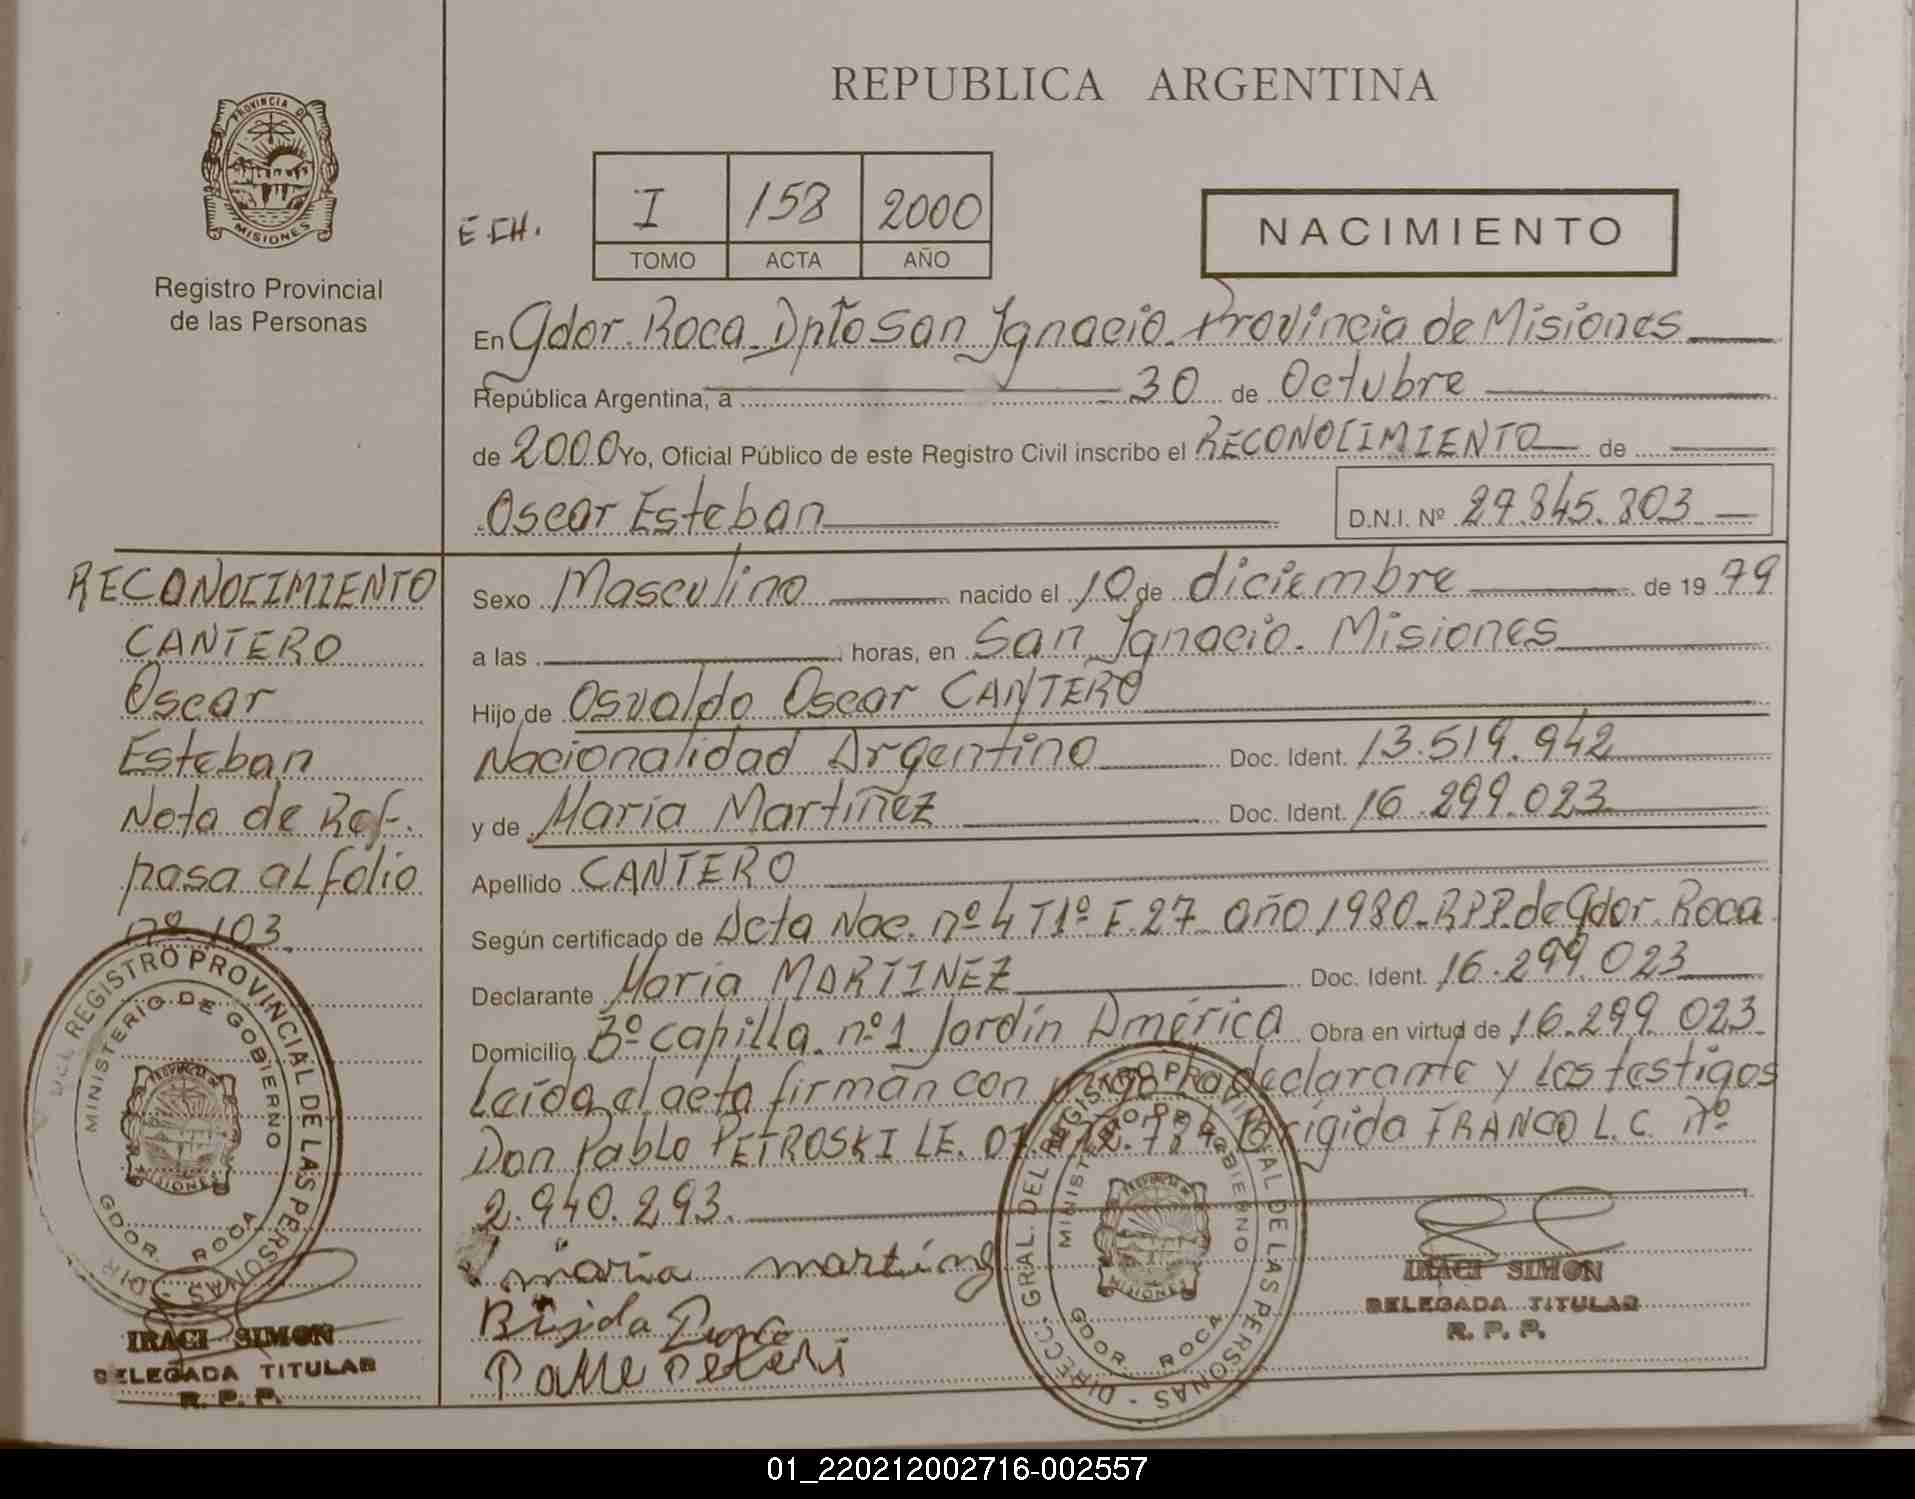 REPUBLICA ARGENTINA
PROVINCIA D
MISIONES
Registro Provincial
de las Personas
E.CH.
I 158 2000
TOMO ACTA AÑO
NACIMIENTO
En Gdor. Roca Dpto San Ignacio. Provincia de Misiones
República Argentina, a 30 de Octubre
de 2000 Yo, Oficial Público de este Registro Civil inscribo el RECONOCIMIENTO de
Oscar Esteban D.N.I. Nº 27.845.803
RECONOCIMIENTO
CANTERO
Oscar
Esteban
Nota de Ref.
pasa al folio
nº 103
Sexo Masculino nacido el 10 de diciembre de 19 79
a las horas, en San Ignacio. Misiones
Hijo de Osvaldo Oscar CANTERO
Nacionalidad Argentino Doc. Ident. 13.519.942
y de María Martíñez Doc. Ident. 16.299.023
Apellido CANTERO
Según certificado de Acta Nac. nº 4 T1º F. 27 año 1980-R.P.P. de Gdor. Roca
Declarante María MARTINEZ Doc. Ident. 16.299.023
Domicilio Bº Capilla nº 1 Jardín América Obra en virtud de 16.299.023
Leída el acta firman con la declarante y los testigos
Don Pablo PETROSKI L.E. Brígida FRANCO L.C. nº
2.940.293.
maria
DIRECC. GRAL. DEL REGISTRO PROVINCIAL DE LAS PERSONAS -
MINISTERIO DE GOBIERNO
MISIONES
GDOR. ROCA
IRACI SIMON
DELEGADA TITULAR
R. P. P.
DEL REGISTRO PROVINCIAL DE LAS PERSONAS - DIR
MINISTERIO DE GOBIERNO
MISIONES
GDOR. ROCA
IRACI SIMON
DELEGADA TITULAR
R. P. P.
01_220212002716-002557